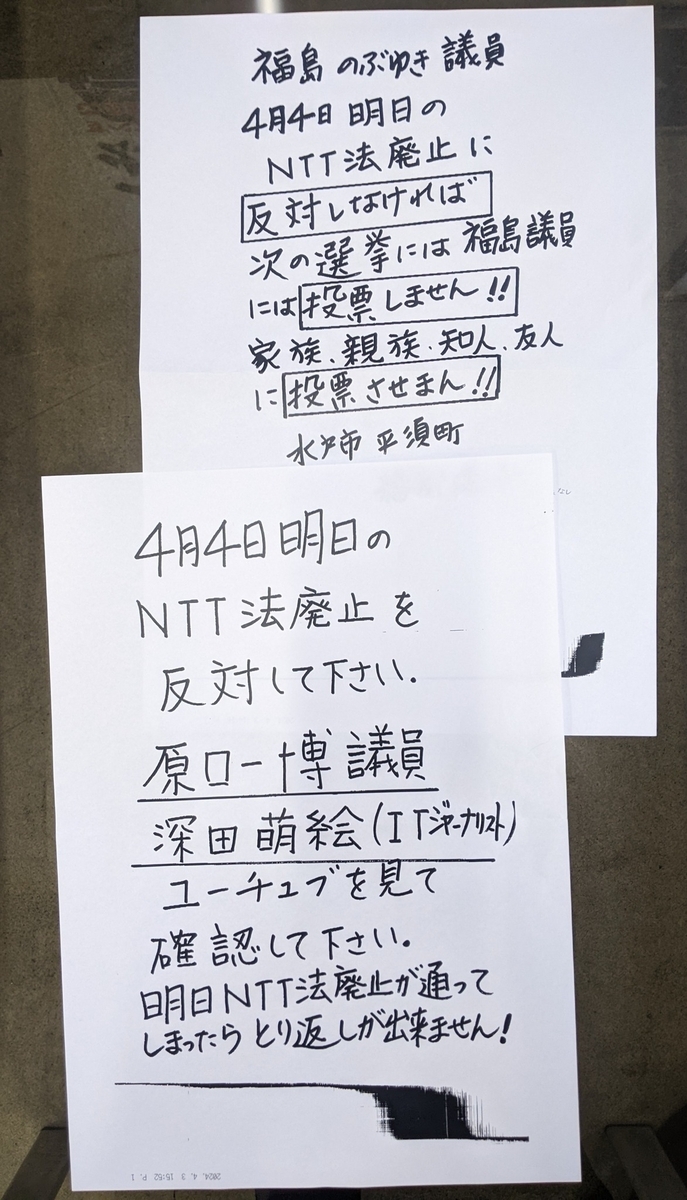 福島 のぶゆき 議員
4月4日 明日の
NTT法廃止に
反対しなければ
次の選挙には 福島議員
には投票しません!!
家族、親族、知人、友人
に投票させまん!!
水戸市 平須町
なし
4月4日 明日の
NTT法廃止を
反対して下さい.
原口一博 議員
深田萌絵(ITジャーナリスト)
ユーチュブを見て
確認して下さい。
明日NTT法廃止が通って
しまったら とり返しが出来ません!
2024. 4. 3 15:52 P. 1